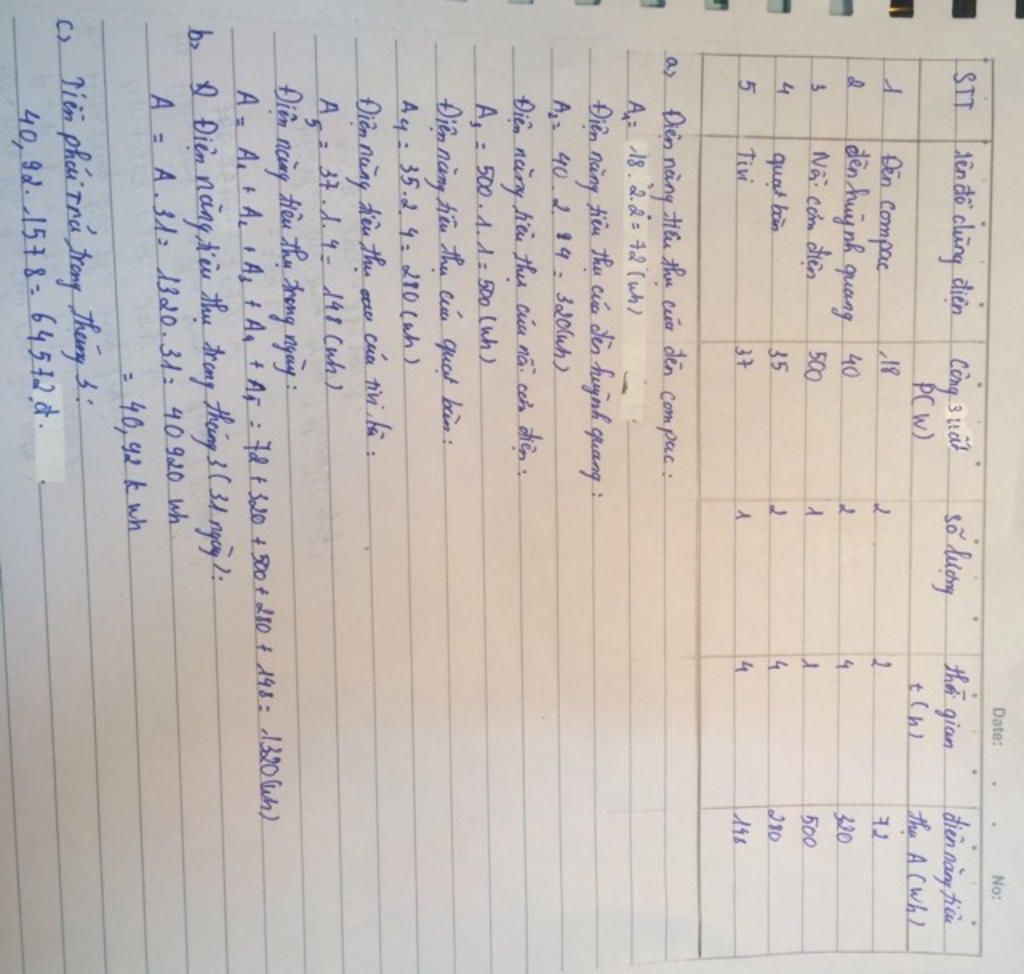 Date: No:
STT tên đồ dùng điện Công suất P(W) số lượng thời gian t(h) điện năng tiêu thụ A(Wh)
1 Đèn compac 18 2 2 72
2 đèn huỳnh quang 40 2 4 320
3 Nồi cơm điện 500 1 1 500
4 quạt bàn 35 2 4 280
5 Tivi 37 1 4 148
a, Điện năng tiêu thụ của đèn compac:
A1= 18.2.2=72(wh)
Điện năng tiêu thụ của đèn huỳnh quang:
A2= 40.2.4 = 320(wh)
Điện năng tiêu thụ của nồi cơm điện:
A3 = 500.1.1=500(wh)
Điện năng tiêu thụ của quạt bàn:
A4 = 35.2.4=280(wh)
Điện năng tiêu thụ của tivi là:
A5 = 37.1.4= 148(wh)
Điện năng tiêu thụ trong ngày:
A= A1 + A2 + A3 + A4 + A5 = 72+320+500+280+148= 1320(wh)
b, Điện năng tiêu thụ trong tháng 3(31 ngày):
A = A.31= 1320.31= 40920 wh
= 40,92 kwh
c, Tiền phải trả trong tháng 3:
40,92.1578=64572đ.